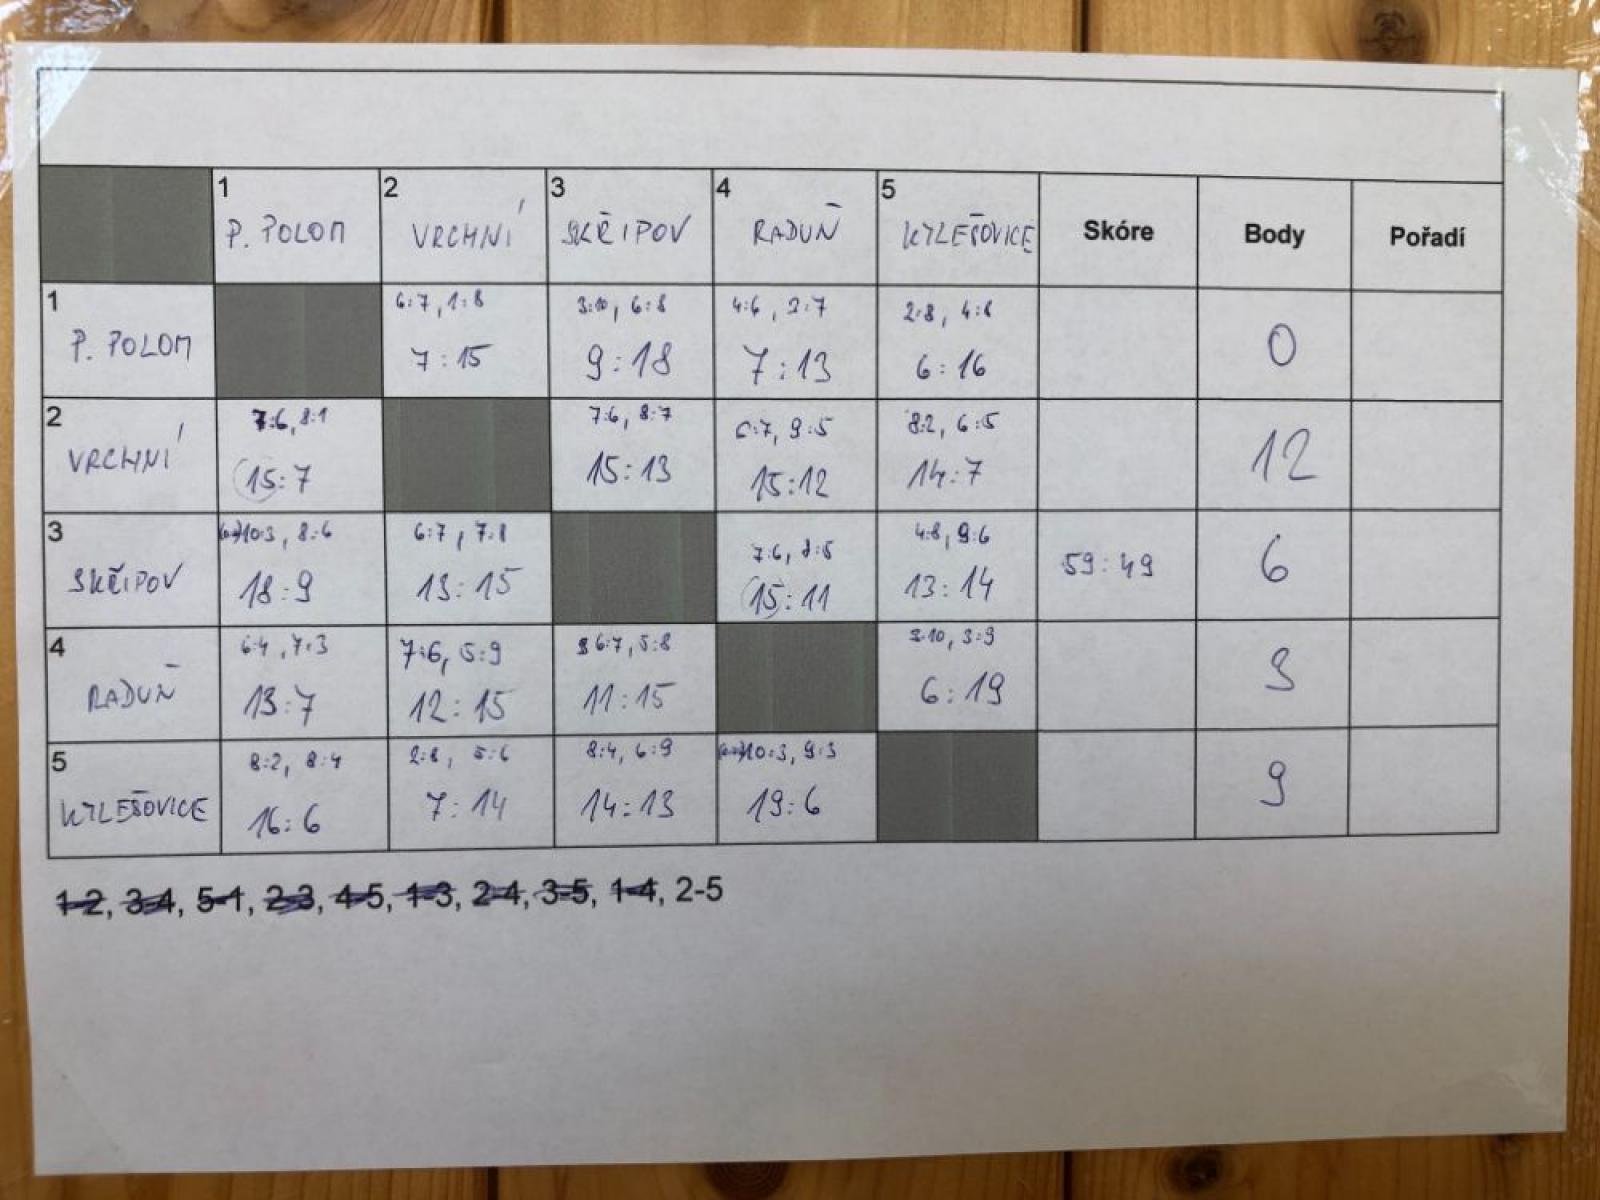 1 2 3 4 5
P. POLOM VRCHNÍ SKŘIPOV RADUŇ KYLEŠOVICE Skóre Body Pořadí
1 6:7, 1:8 3:10, 6:8 4:6, 3:7 2:8, 4:8
P. POLOM 7:15 9:18 7:13 6:16 0
2 7:6, 8:1 7:6, 8:7 6:7, 9:5 8:2, 6:5
VRCHNÍ 15:7 15:13 15:12 14:7 12
3 10:3, 8:6 6:7, 7:8 7:6, 8:5 4:8, 9:6
SKŘIPOV 18:9 13:15 15:11 13:14 59:49 6
4 6:4, 7:3 7:6, 5:9 6:7, 5:8 3:10, 3:9
RADUŇ 13:7 12:15 11:15 6:19 3
5 8:2, 8:4 2:8, 5:6 8:4, 6:9 10:3, 9:3
KYLEŠOVICE 16:6 7:14 14:13 19:6 9
1-2, 3-4, 5-1, 2-3, 4-5, 1-3, 2-4, 3-5, 1-4, 2-5